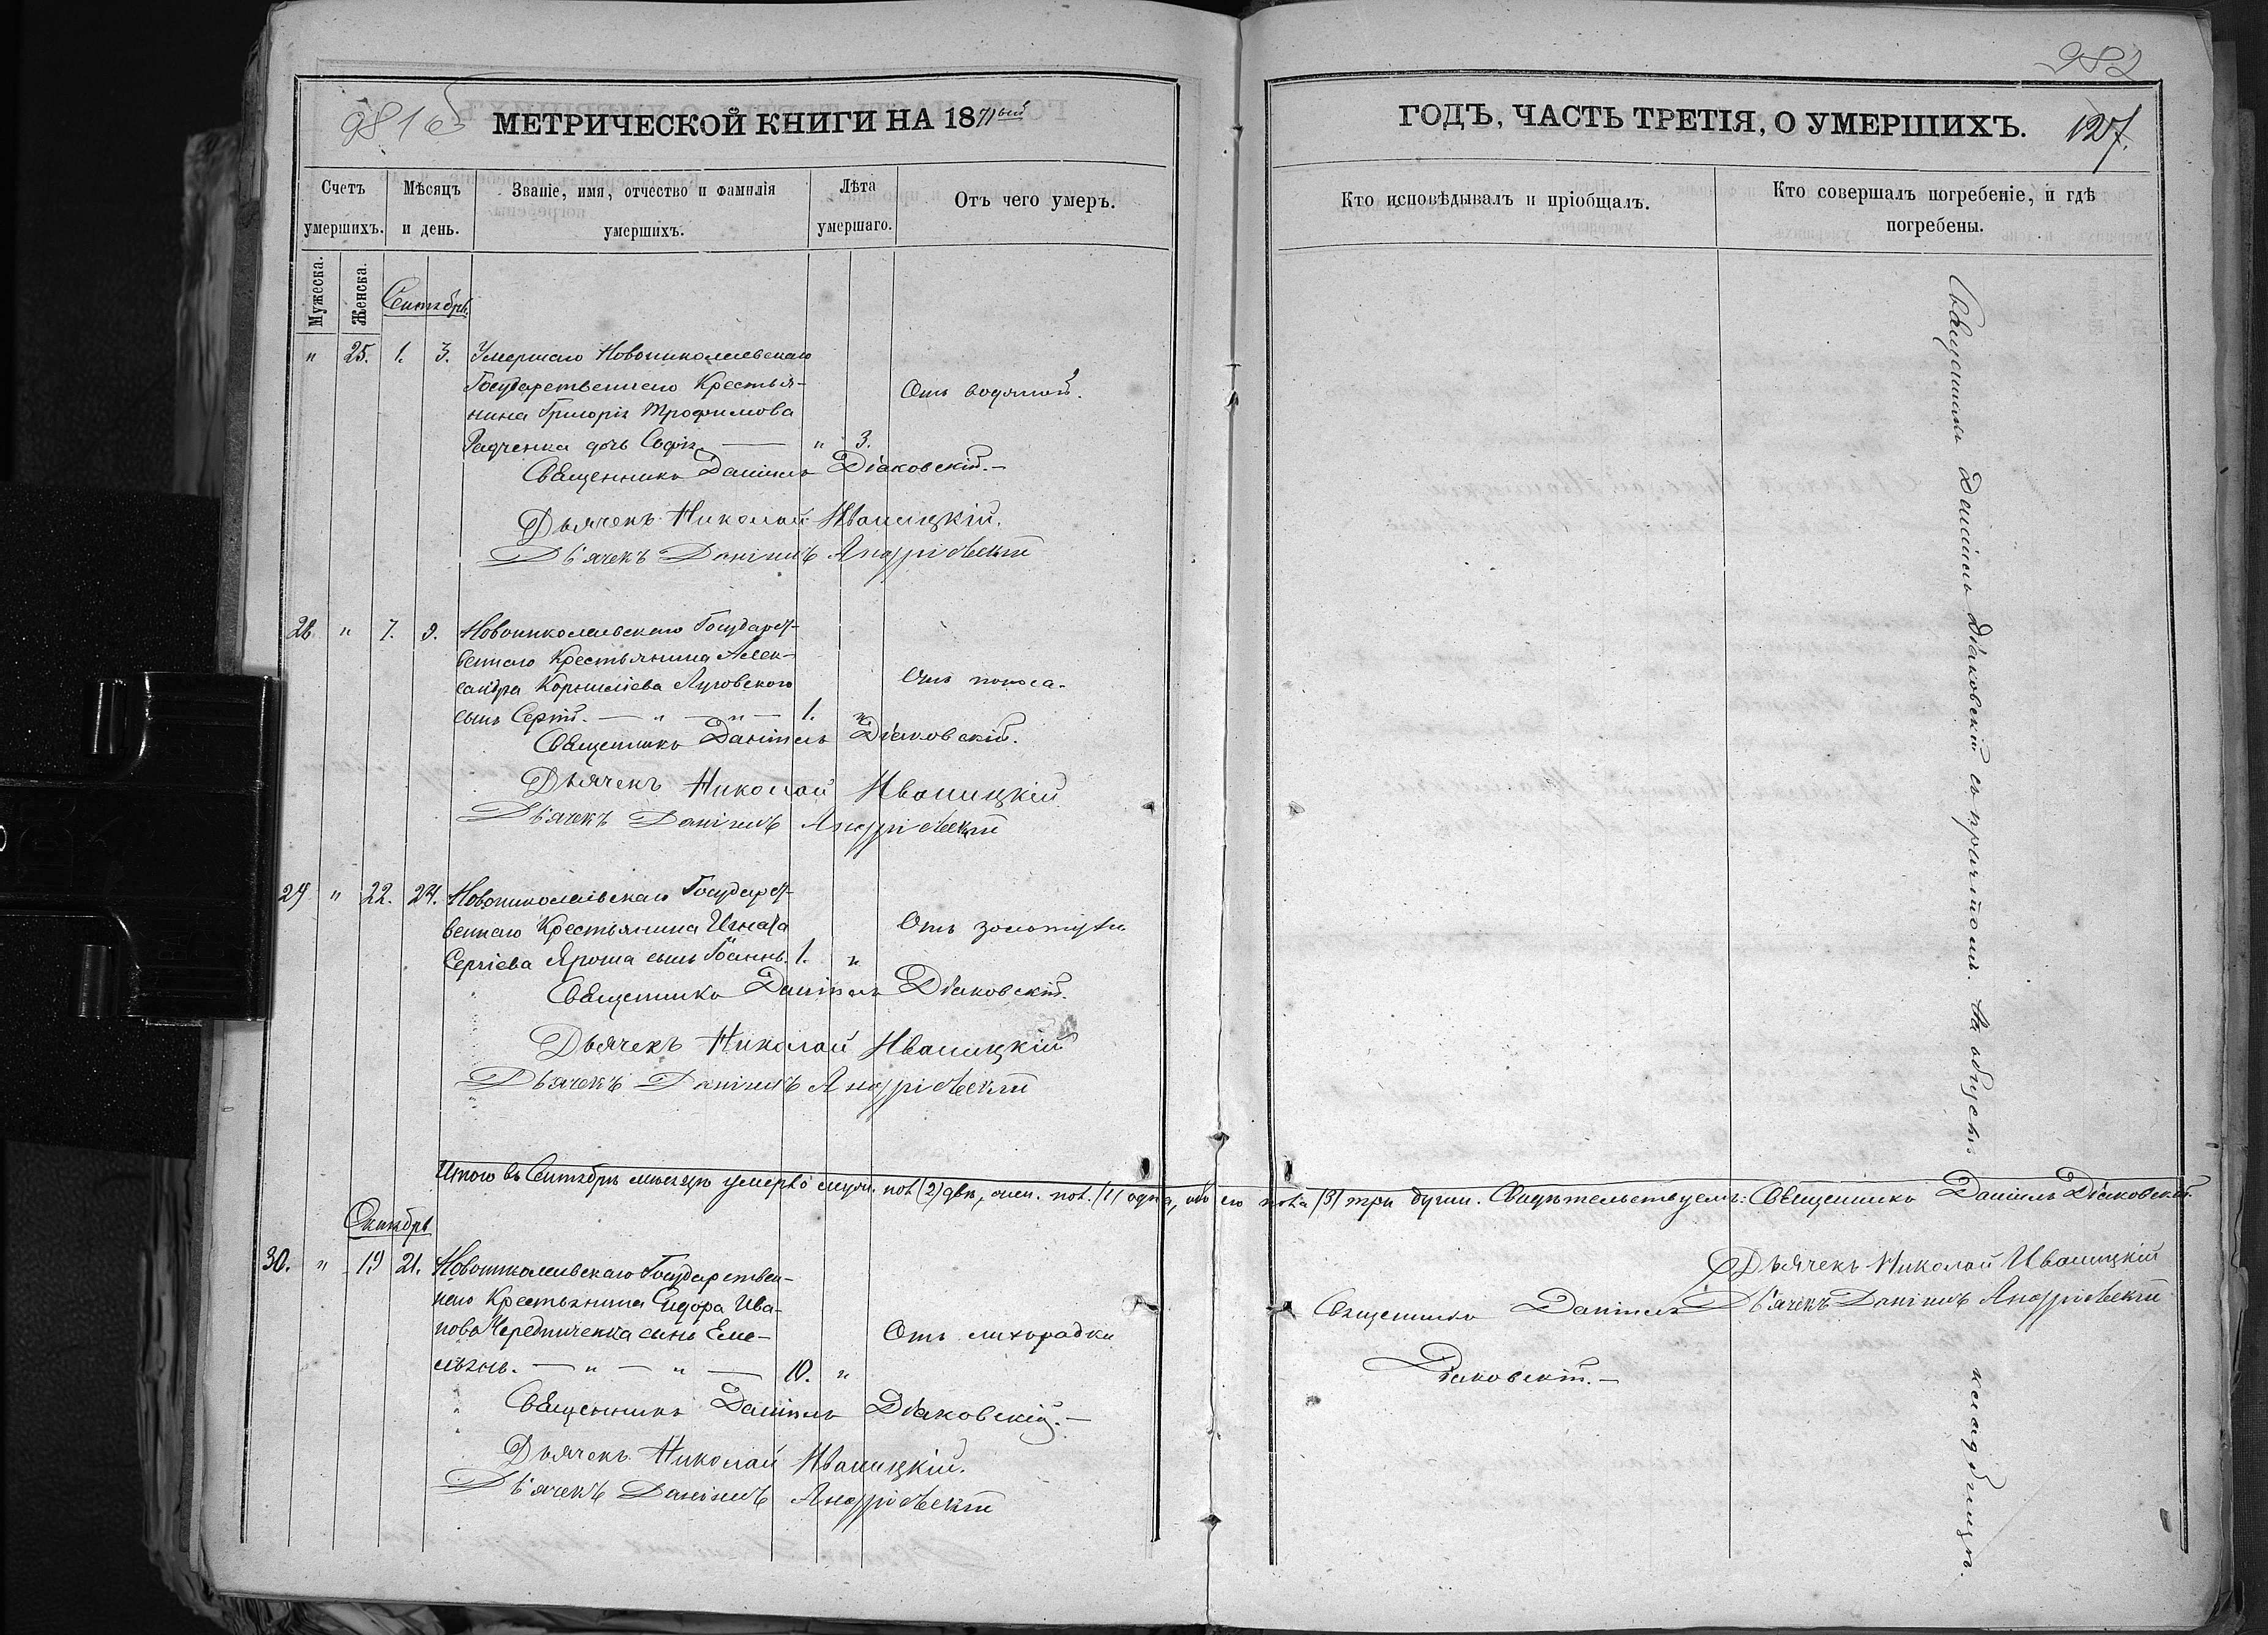 981 об
МЕТРИЧЕСКОЙ КНИГИ НА 1871ый
Счетъ умершихъ.
Мѣсяцъ и день.
Званіе, имя, отчество и фамилія умершихъ.
Лѣта умершаго.
Отъ чего умеръ.
Мужеска.
Женска.
Сентябрь.
" 25. 1. 3. Умершаго Новониколаевскаго
Государственнаго Крестья-
нина Григорія Трофимова
Радченка дочь Софія — " 3.
Отъ водяной.
Священникъ Даніилъ Діаковскій.—
Дьячекъ Николай Иваницкій.
Дьячекъ Даніилъ Андріевскій
28 " 7. 9. Новониколаевскаго Государст-
веннаго Крестьянина Алек-
сандра Корнилiева Луговскаго
сынъ Сергій. — " — " — 1. "
Отъ поноса.
Священникъ Даніилъ Діаковскій.
Дьячекъ Николай Иваницкій
Дьячекъ Даніилъ Андріевскій
29 " 22. 24. Новониколаевскаго Государст-
веннаго Крестьянина Игната
Сергіева Яроша сынъ Іоаннъ. 1. "
Отъ золотухи
Священникъ Даніилъ Діаковскій.
Дьячекъ Николай Иваницкій
Дьячекъ Даніилъ Андріевскій
Итого въ Сентябрѣ мѣсяцѣ умерло муж. пола (2) два, жен. пол. (1) одна, обоего пола (3) три души. Свидѣтельствуемъ: Священникъ Даніилъ Діаковскій.
Дьячекъ Николай Иваницкій
Дьячекъ Даніилъ Андріевскій
Октябрь
30. " 19 21. Новониколаевскаго Государствен-
наго Крестьянина Сидора Ива-
нова Чередниченка сынъ Еме-
льянъ. — " — " — 10. "
Отъ лихорадки
Священникъ Даніилъ Діаковскій.—
Дьячекъ Николай Иваницкій.
Дьячекъ Даніилъ Андріевскій
982
ГОДЪ, ЧАСТЬ ТРЕТІЯ, О УМЕРШИХЪ.
127.
Кто исповѣдывалъ и пріобщалъ.
Кто совершалъ погребеніе, и гдѣ погребены.
Священникъ Даніилъ
Діаковскій.—
Священникъ Даніилъ Діаковскій съ причтомъ. На общемъ кладбищѣ.